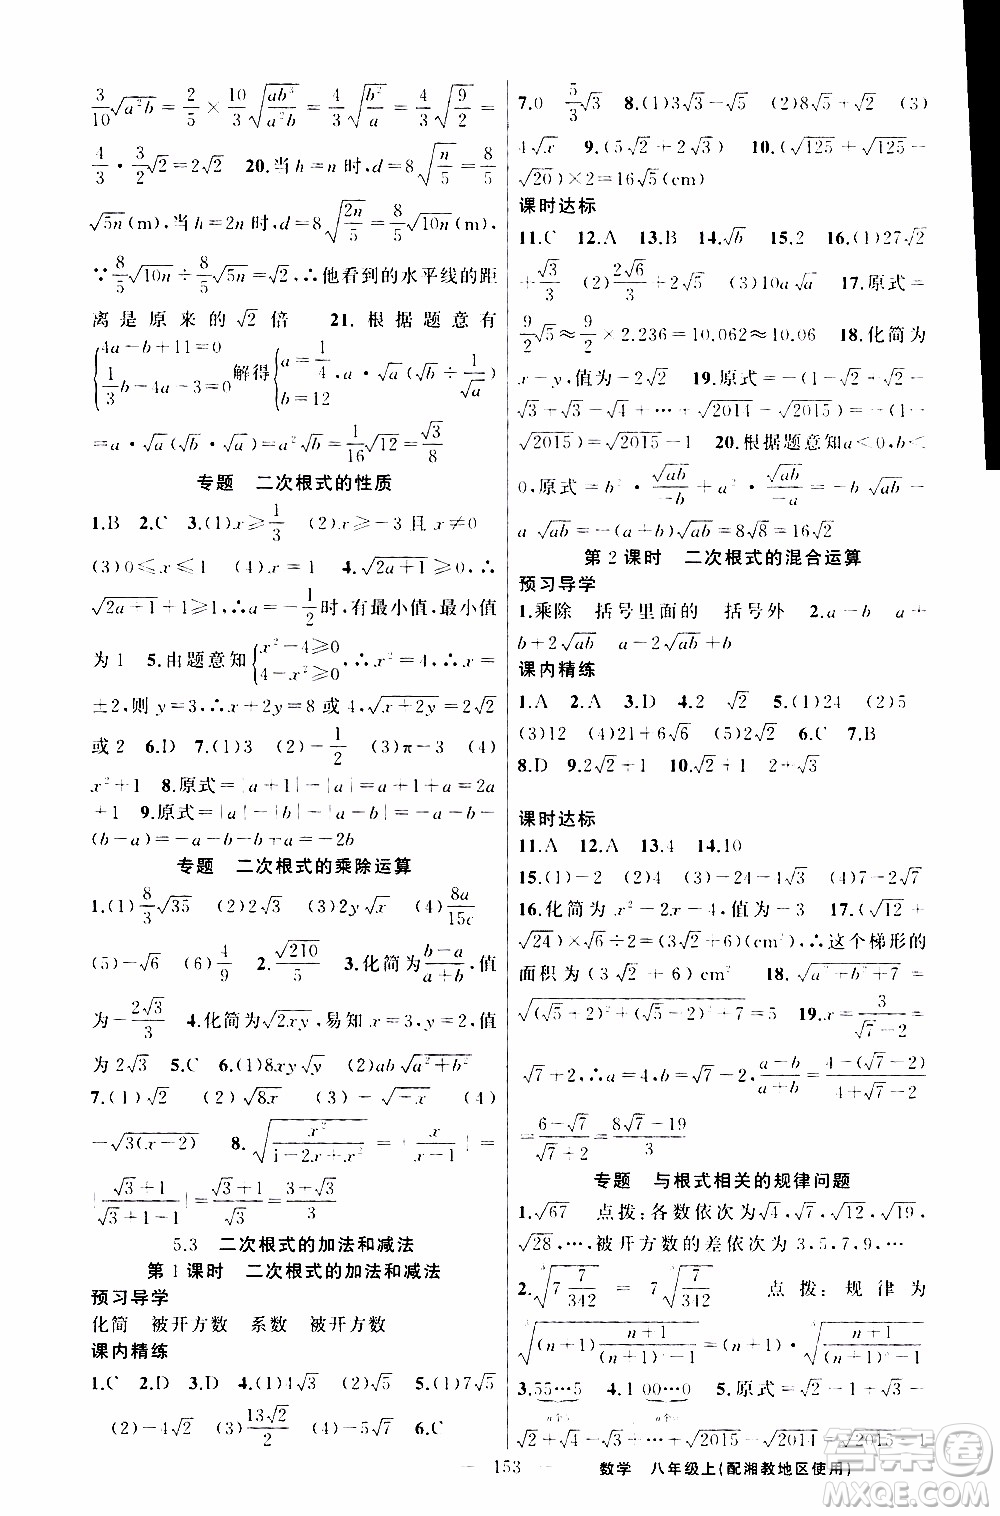 3/10√(a²b) = 2/5 × 10/3 √(ab³/a²b) = 4/3 √(b²/a) = 4/3 √(9/2) =
4/3 · 3/2 √2 = 2√2　20.当 h=n 时,d=8√(n/5) = 8/5
√5n(m),当 h=2n 时,d=8√(2n/5) = 8/5 √10n(m),
∵ 8/5 √10n ÷ 8/5 √5n = √2,∴他看到的水平线的距
离是原来的√2倍　21.根据题意有
{4a-b+11=0, 1/3 b-4a-3=0 解得{a=1/4, b=12 ,a·√a(√b÷1/√a)
=a·√a(√b·√a)=a²√b=1/16 √12=√3/8
专题　二次根式的性质
1.B　2.C　3.(1)x≥1/3　(2)x≥-3且x≠0
(3)0≤x≤1　4.√(2a+1)≥0,∴
√(2a+1)+1≥1,∴a=-1/2时,有最小值,最小值
为1　5.由题意知{x²-4≥0, 4-x²≥0 ,∴x²=4,∴x=
±2,则y=3,∴x+2y=8或4,√(x+2y)=2√2
或2　6.D　7.(1)3　(2)-1/2　(3)π-3　(4)
x²+1　8.原式=|a+1|-|a|=a+1+a=2a
+1　9.原式=|a|-|b|+a-b=-a-b+a-
(b+a)=-a-b-b+a=-2b
专题　二次根式的乘除运算
1.(1)8/3 √35　(2)2√3　(3)2y√x　(4)8a/15c
(5)-√6　(6)4/9　2.√210/5　3.化简为(b-a)/(a+b),值
为-2√3/3　4.化简为√2xy,易知x=3,y=2,值
为2√3　5.C　6.(1)8xy√y　(2)ab√(a²+b²)
7.(1)√2　(2)√8x　(3)-√-x　(4)
-√3(x-2)　8.√(x²/(1-2x+x²))=|x/(1-x)|=
|(√3+1)/(-√3)|=(√3+1)/√3=(3+√3)/3
5.3　二次根式的加法和减法
第1课时　二次根式的加法和减法
预习导学
化简　被开方数　系数　被开方数
课内精练
1.C　2.D　3.B　4.(1)4√3　(2)√2　5.(1)7√5
(2)-4√2　(3)13√2/2　(4)-5√7　6.C
7.0　5/3 √3　8.(1)3√3-√5　(2)8√5+√2　(3)
4√x　9.(5√2+2√3)　10.(√125+√125+
√20)×2=16√5(cm)
课时达标
11.C　12.A　13.B　14.√b　15.2　16.(1)27√2
+√3/3　(2)2√6/3+√2　(3)10a√a　17.原式=
9/2 √5≈9/2×2.236=10.062≈10.06　18.化简为
x-y,值为-2√2　19.原式=-(1-√2+√2-
√3+√3-√4+…+√2014-√2015)=-(1-
√2015)=√2015-1　20.根据题意知a<0,b<
0,原式=b·√ab/-b+a·√ab/-a=-b√ab-
a√ab=-(a+b)√ab=8√8=16√2
第2课时　二次根式的混合运算
预习导学
1.乘除　括号里面的　括号外　2.a-b　a+
b+2√ab　a-2√ab+b
课内精练
1.A　2.A　3.D　4.2　√2　5.(1)24　(2)5
(3)12　(4)21+4√5　6.C　7.B
8.D　9.2√2+1　10.√2+2√3
课时达标
11.A　12.A　13.4　14.10
15.(1)-2　(2)4　(3)-24-4√3　(4)7-2√7
16.化简为x²-2x-4,值为-3　17.(√12+
√24)×√6÷2=3√2+6(cm²),∴这个梯形的
面积为(3√2+6)cm²　18.√(a²+b²+7)=
√((√5+2)²+(√5-2)²+7)=5　19.x=3/(√7-2)=
√7+2,∴a=4,b=√7-2,∴(a-b)/(a+b)=(4-(√7-2))/(4+√7-2)
=(6-√7)/(√7+2)=(8√7-19)/3
专题　与根式相关的规律问题
1.√67　点拨:各数依次为√4,√7,√12,√19,
√28,…,被开方数的差依次为3,5,7,9,…
2.∛(7+7/342)=7∛(7/342)　点拨:规律为
∛((n+1)+(n+1)/((n+1)³-1))=(n+1)·∛((n+1)/((n+1)³-1))
3.55…5　4.100…0　5.原式=√2-1+√3-
n个　n个
√2+√4-√3+…+√2015-√2014=√2015-1
153
数学　八年级上(配湘教地区使用)
答案圈
MXQE.COM